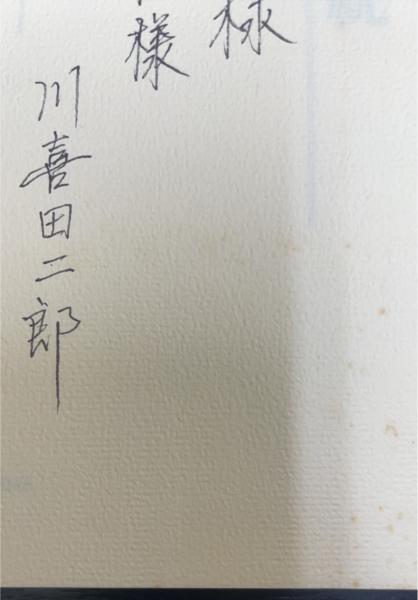 様
様
川喜田二郎